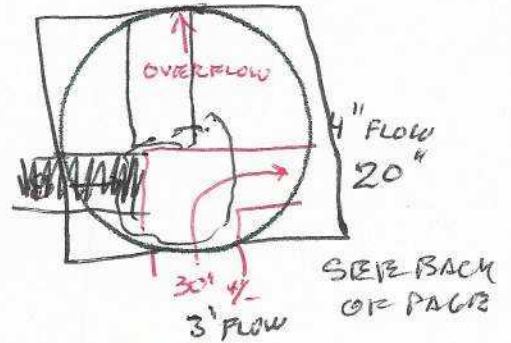 OVERFLOW
4" FLOW
20"
30" +/-
3' FLOW
SEE BACK
OF PAGE